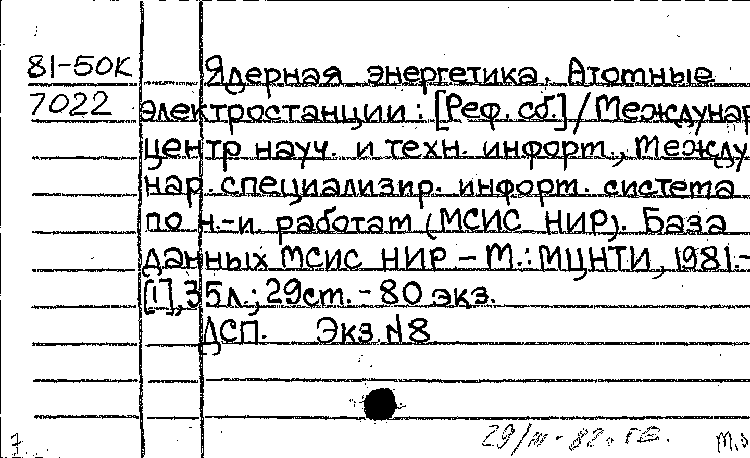 81-50К Ядерная энергетика. Атомные
7022 электростанции: [Реф. сб.] / Междунар
центр науч. и техн. информ., Между
нар. специализир. информ. система
по н.-и. работам (МСИС НИР). База
данных МСИС НИР – М.: МЦНТИ, 1981.–
[1], 35 л.; 29 см. – 80 экз.
ДСП. Экз. №8
29/III-82г.
7